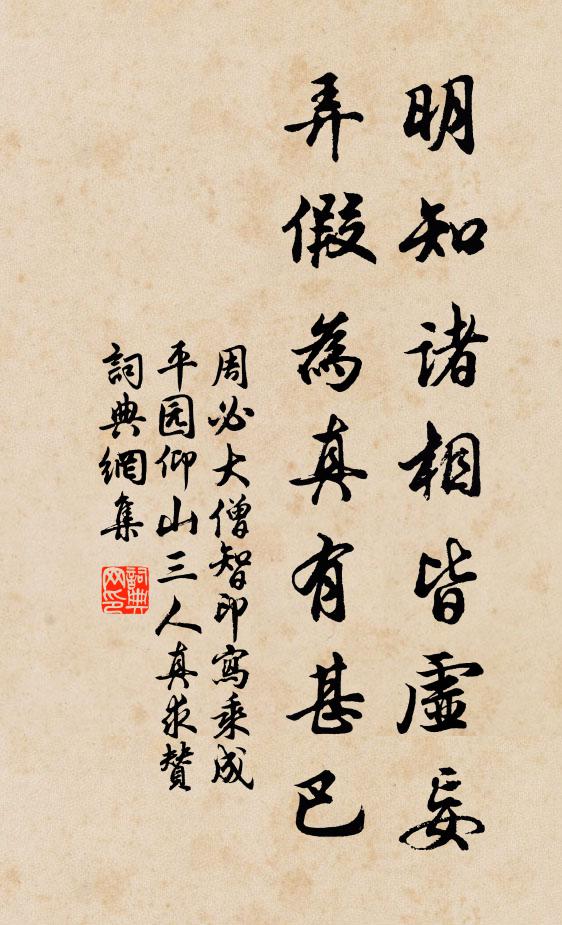 明知诸相皆虚妄
弄假為真有甚巴
周必大僧智印寫乘成
平园仰山三人真求贊
詞典網集
詞典网印